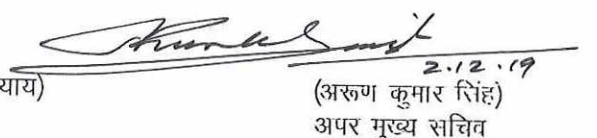 2.12.19
याय)
(अरूण कुमार सिंह)
अपर मुख्य सचिव